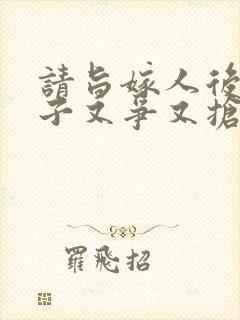 請旨嫁人後
子又爭又搶
羅飛招